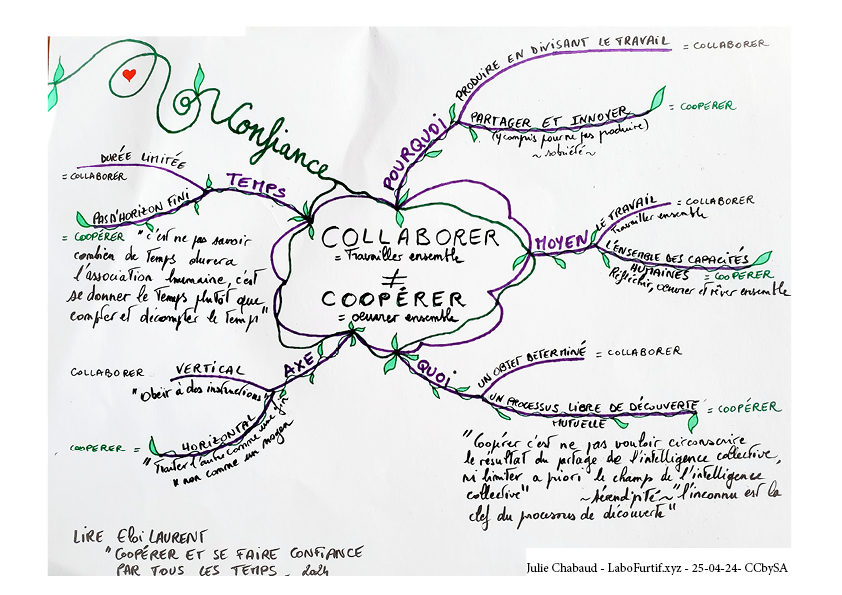 Confiance
POURQUOI
PRODUIRE EN DIVISANT LE TRAVAIL = COLLABORER
PARTAGER ET INNOVER = COOPÉRER
(y compris pour ne pas produire)
~ sobriété ~
TEMPS
DURÉE LIMITÉE
= COLLABORER
PAS D'HORIZON FINI
= COOPÉRER "c'est ne pas savoir
combien de temps durera
l'association humaine, c'est
se donner le temps plutôt que
compter et décompter le temps"
COLLABORER
= Travailler ensemble
≠
COOPÉRER
= oeuvrer ensemble
MOYEN
LE TRAVAIL = COLLABORER
Travailler ensemble
L'ENSEMBLE DES CAPACITÉS
HUMAINES = COOPÉRER
Réfléchir, oeuvrer et rêver ensemble
AXE
COLLABORER = VERTICAL
"Obéir à des instructions"
COOPERER = HORIZONTAL
"Traiter l'autre comme une fin
" non comme un moyen
QUOI
UN OBJET DETERMINÉ = COLLABORER
UN PROCESSUS LIBRE DE DÉCOUVERTE = COOPÉRER
MUTUELLE
"Coopérer c'est ne pas vouloir circonscrire
le résultat du partage de l'intelligence collective,
ni limiter a priori le champs de l'intelligence
collective" ~ sérendipité ~ "l'inconnu est la
clef du processus de découverte"
LIRE Eloi LAURENT
"COOPÉRER ET SE FAIRE CONFIANCE
PAR TOUS LES TEMPS - 2024
Julie Chabaud - LaboFurtif.xyz - 25-04-24- CCbySA